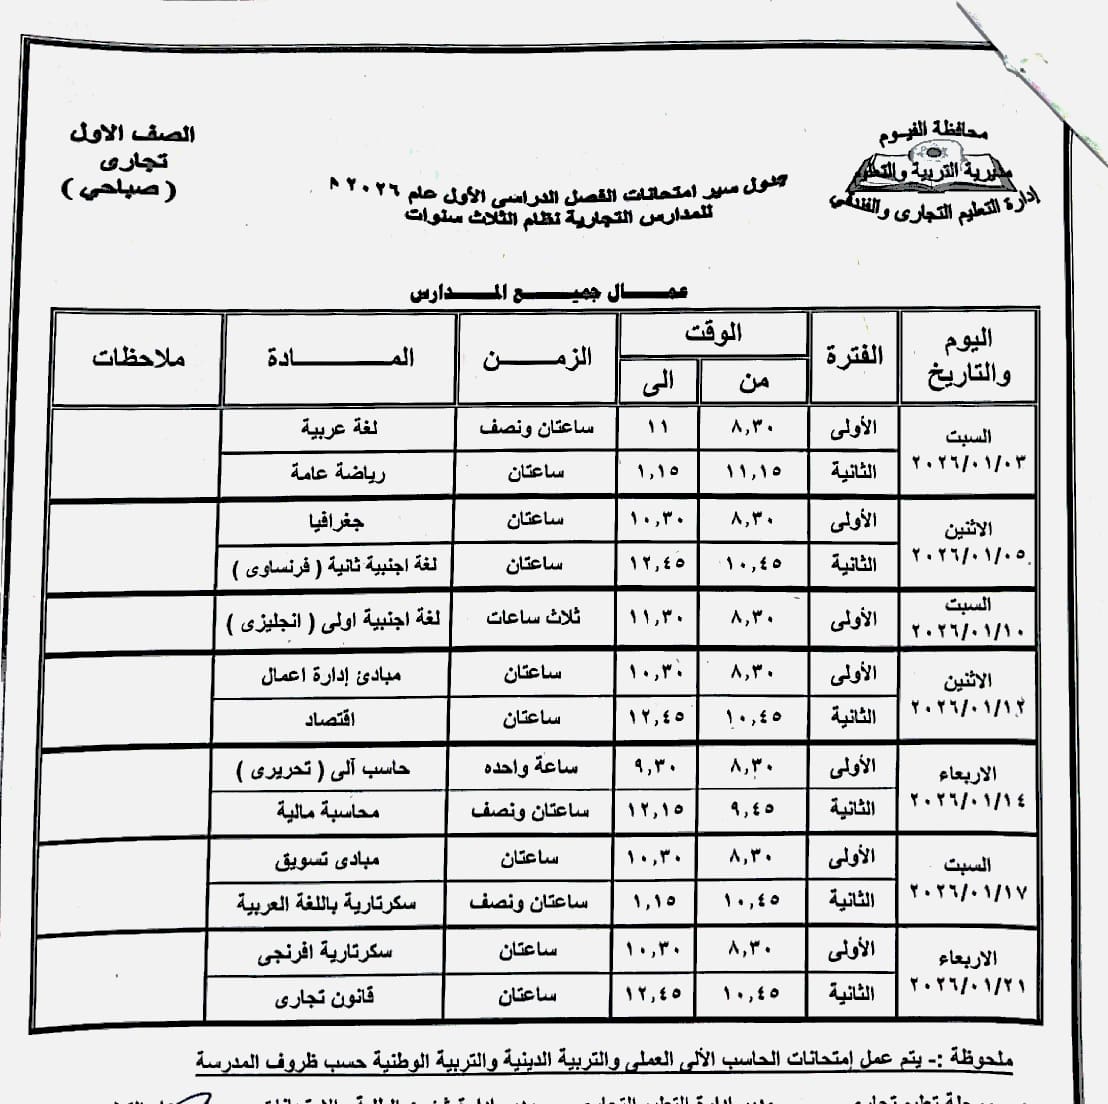 محافظة الفيوم
مديرية التربية والتعليم
إدارة التعليم التجارى والفندقي
الصف الاول
تجارى
( صباحي )
جدول سير امتحانات الفصل الدراسى الأول عام ٢٠٢٦ م
للمدارس التجارية نظام الثلاث سنوات
عمال جميع المدارس
اليوم والتاريخ | الفترة | الوقت | الزمن | المادة | ملاحظات
من | الى
السبت ٢٠٢٦/٠١/٠٣ | الأولى | ٨,٣٠ | ١١ | ساعتان ونصف | لغة عربية
الثانية | ١١,١٥ | ١,١٥ | ساعتان | رياضة عامة
الاثنين ٢٠٢٦/٠١/٠٥ | الأولى | ٨,٣٠ | ١٠,٣٠ | ساعتان | جغرافيا
الثانية | ١٠,٤٥ | ١٢,٤٥ | ساعتان | لغة اجنبية ثانية ( فرنساوى )
السبت ٢٠٢٦/٠١/١٠ | الأولى | ٨,٣٠ | ١١,٣٠ | ثلاث ساعات | لغة اجنبية اولى ( انجليزى )
الاثنين ٢٠٢٦/٠١/١٢ | الأولى | ٨,٣٠ | ١٠,٣٠ | ساعتان | مبادئ إدارة اعمال
الثانية | ١٠,٤٥ | ١٢,٤٥ | ساعتان | اقتصاد
الاربعاء ٢٠٢٦/٠١/١٤ | الأولى | ٨,٣٠ | ٩,٣٠ | ساعة واحده | حاسب آلى ( تحريرى )
الثانية | ٩,٤٥ | ١٢,١٥ | ساعتان ونصف | محاسبة مالية
السبت ٢٠٢٦/٠١/١٧ | الأولى | ٨,٣٠ | ١٠,٣٠ | ساعتان | مبادى تسويق
الثانية | ١٠,٤٥ | ١,١٥ | ساعتان ونصف | سكرتارية باللغة العربية
الاربعاء ٢٠٢٦/٠١/٢١ | الأولى | ٨,٣٠ | ١٠,٣٠ | ساعتان | سكرتارية افرنجى
الثانية | ١٠,٤٥ | ١٢,٤٥ | ساعتان | قانون تجارى
ملحوظة :- يتم عمل إمتحانات الحاسب الألى العملى والتربية الدينية والتربية الوطنية حسب ظروف المدرسة